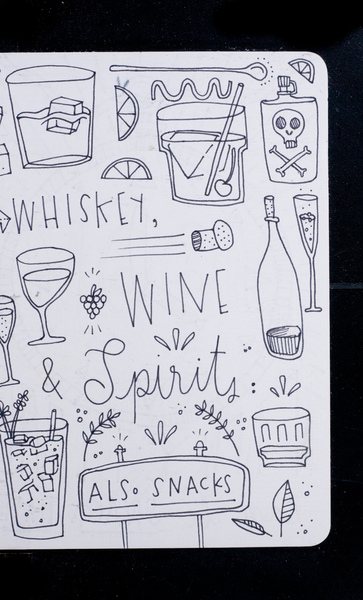 WHISKEY,
WINE
& Spirits
ALSO SNACKS